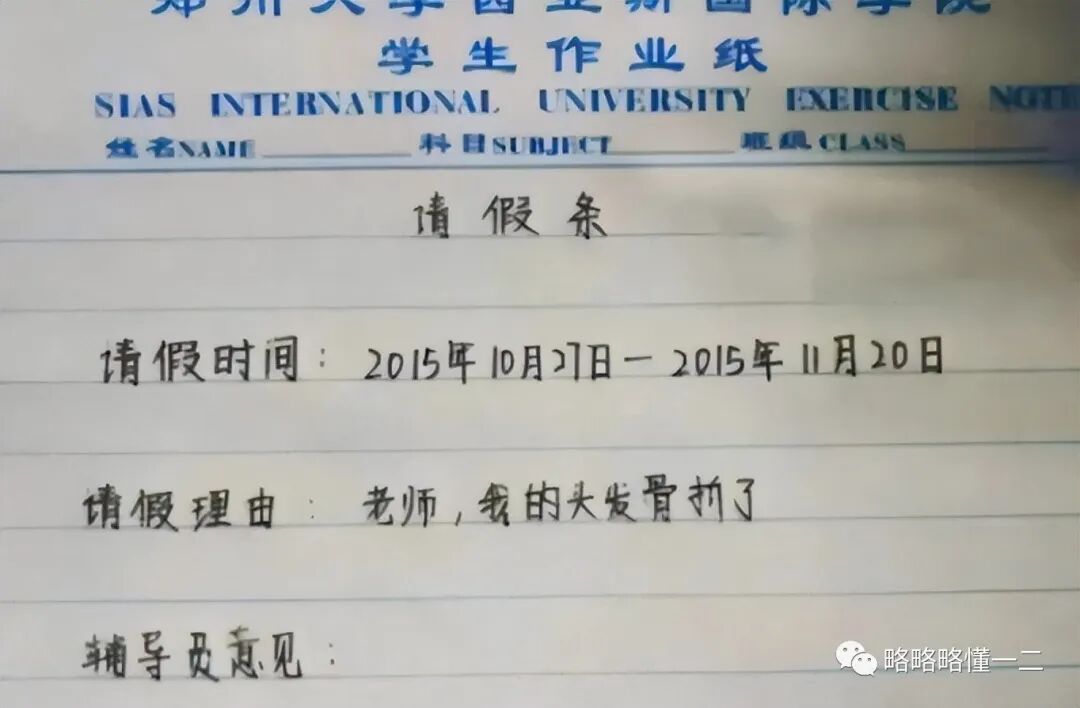 郑州大学西亚斯国际学院
学生作业纸
SIAS INTERNATIONAL UNIVERSITY EXERCISE NOTE
姓名NAME 科目SUBJECT 班级CLASS
请假条
请假时间：2015年10月27日—2015年11月20日
请假理由：老师,我的头发骨折了
辅导员意见：
略略略懂一二